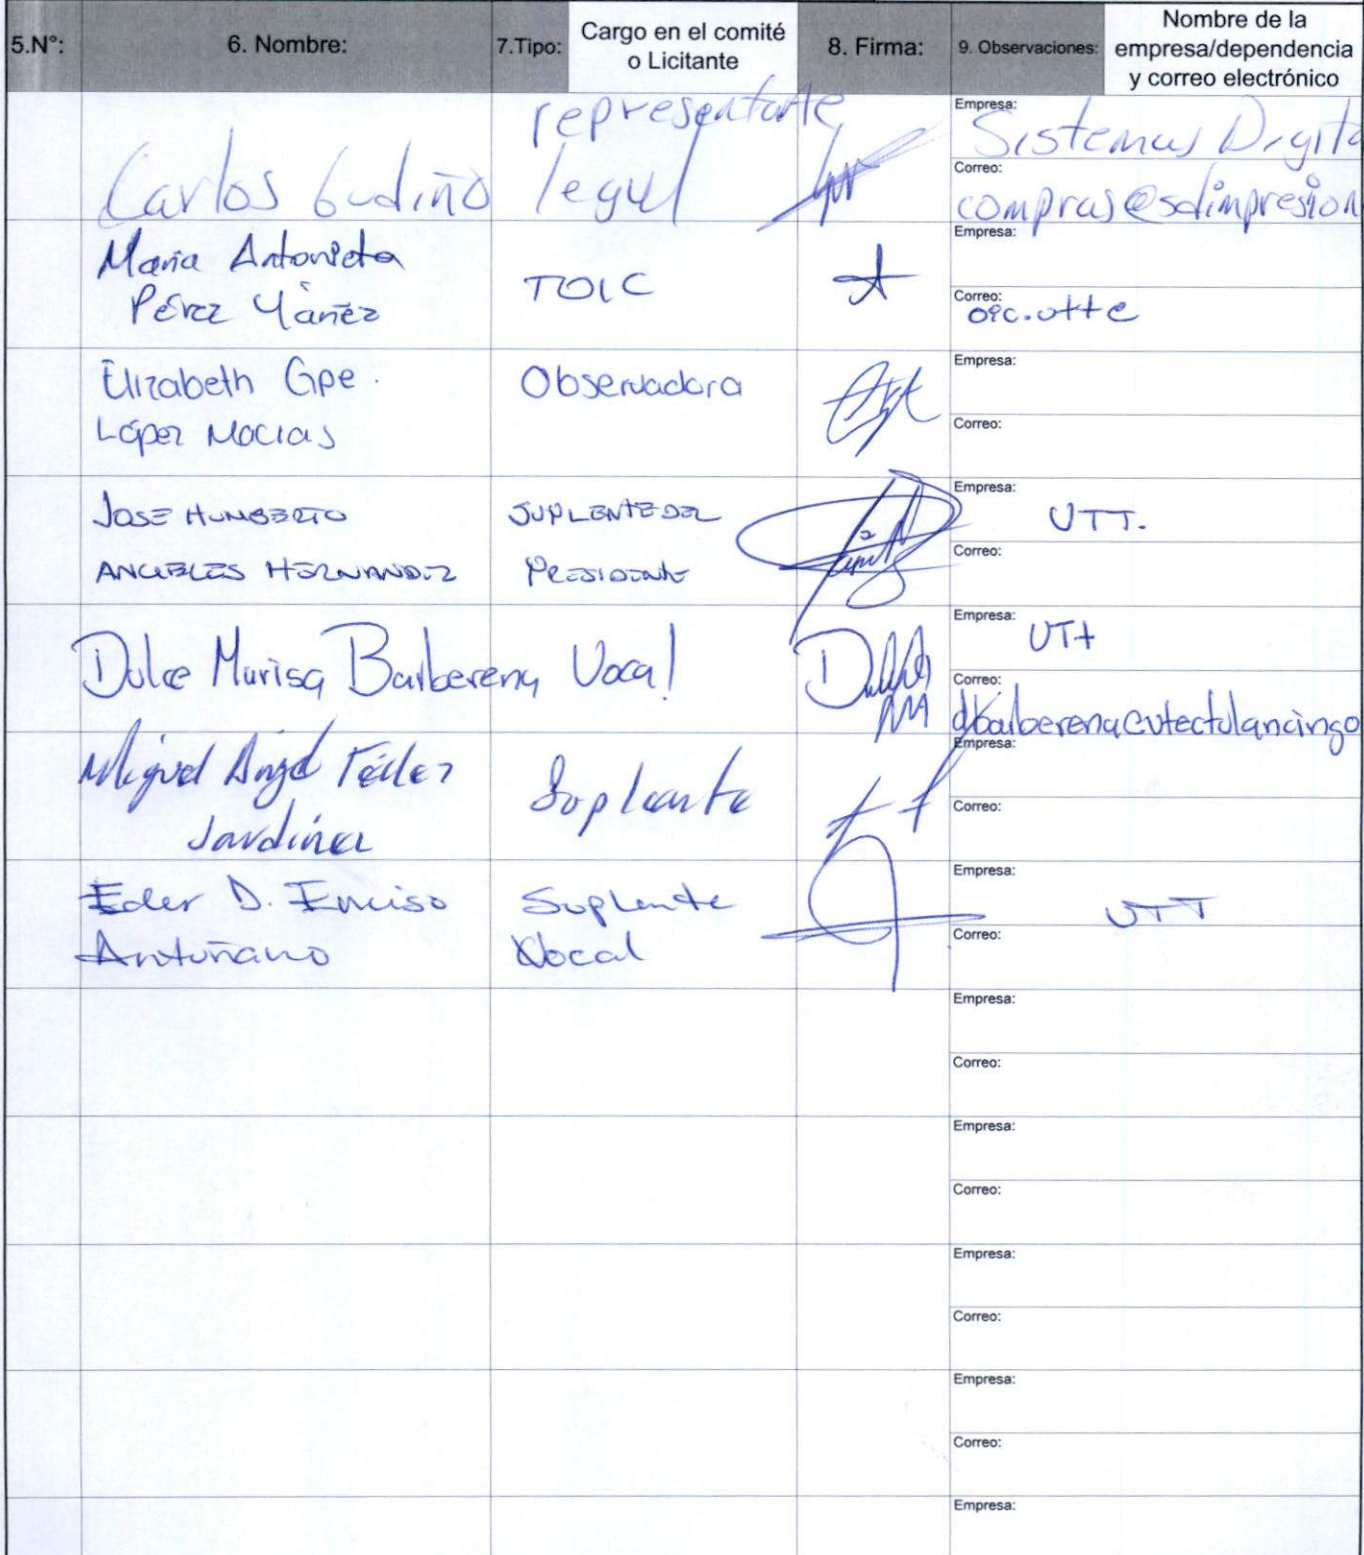 5.N°:
6. Nombre:
7.Tipo:
Cargo en el comité
o Licitante
8. Firma:
9. Observaciones:
Nombre de la
empresa/dependencia
y correo electrónico
Carlos Gudiño
representante
legal
Empresa:
Sistemas Digita
Correo:
compras@sdimpresion
Maria Antonieta
Pérez Yáñez
TOIC
Empresa:
Correo:
oic.utte
Elizabeth Gpe.
López Macias
Observadora
Empresa:
Correo:
JOSE HUMBERTO
ANGELES HERNANDEZ
SUPLENTE DEL
PRESIDENTE
Empresa:
UTT.
Correo:
Dulce Marisa Barberena
Vocal
Empresa:
UTt
Correo:
dbarberena@utectulancingo
Miguel Angel Téllez
Jardínez
Suplente
Empresa:
Correo:
Eder D. Enciso
Antuñano
Suplente
Vocal
Empresa:
UTT
Correo:
Empresa:
Correo:
Empresa:
Correo:
Empresa:
Correo:
Empresa:
Correo:
Empresa: